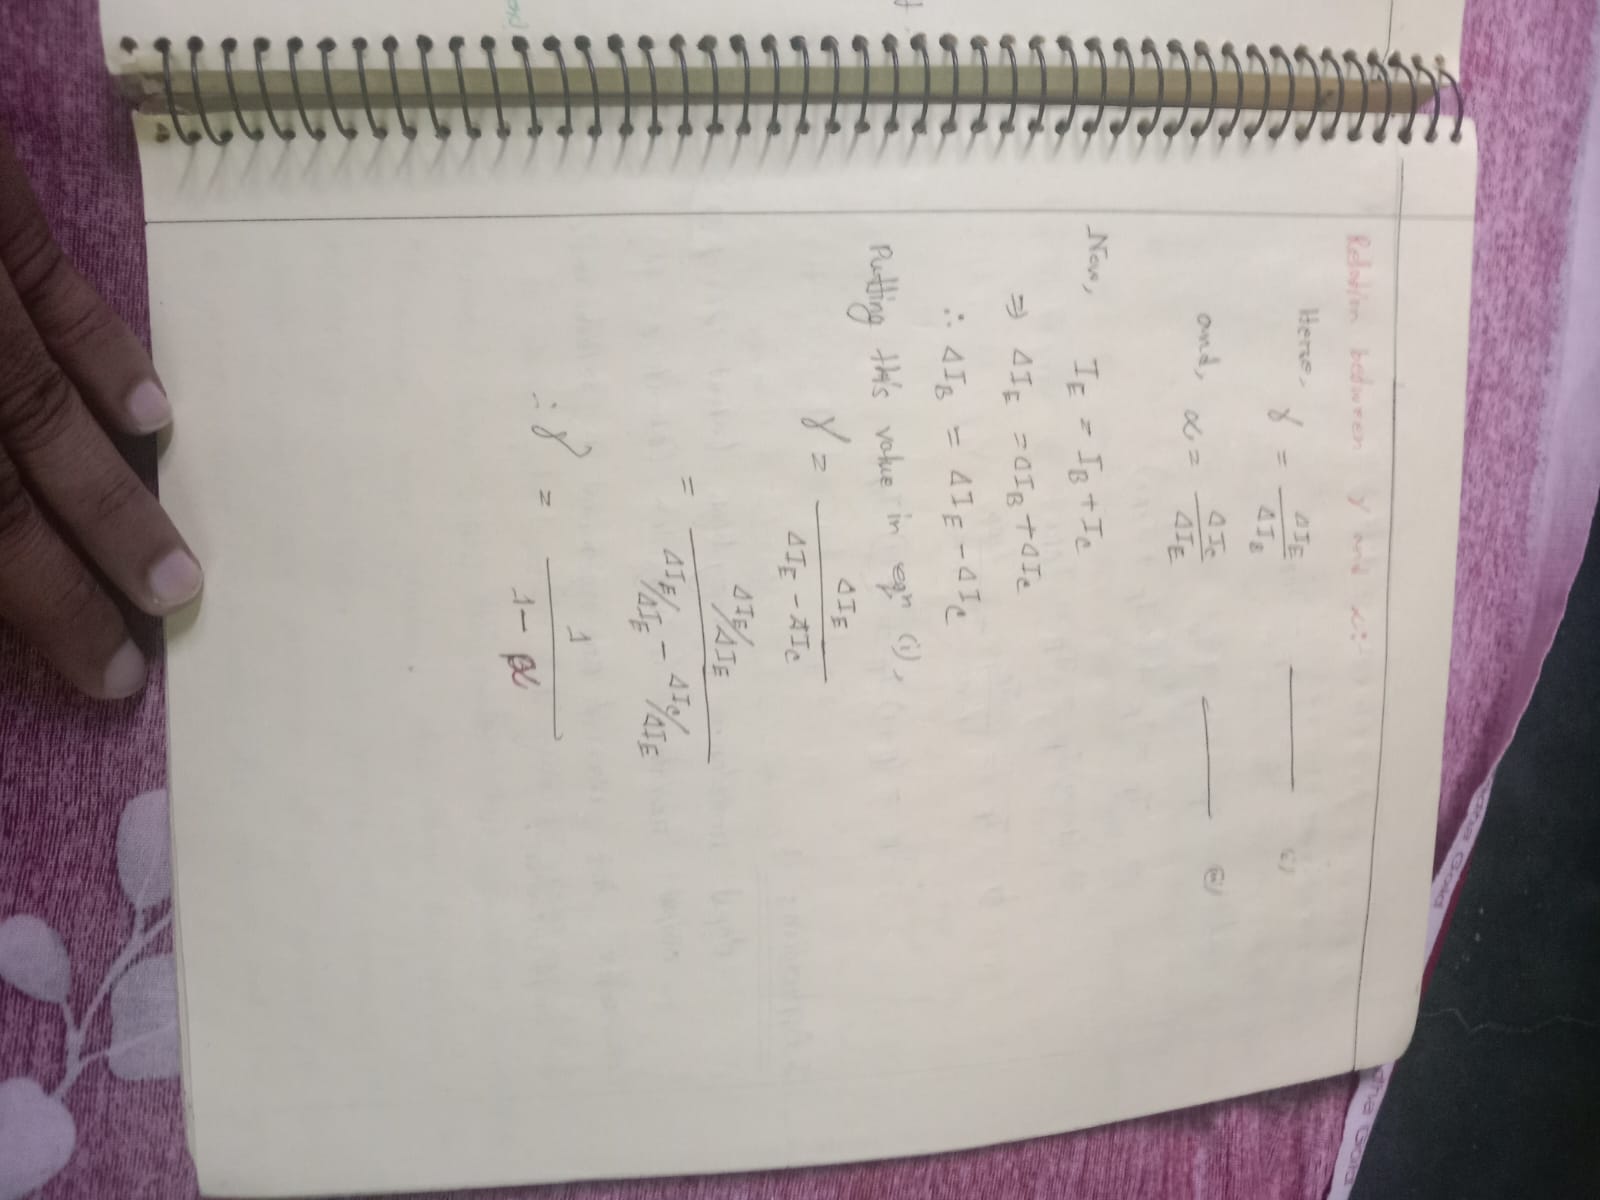 Relation between γ and α:
Here, γ = ΔI_E / ΔI_B ——— (i)
and, α = ΔI_C / ΔI_E ——— (ii)
Now, I_E = I_B + I_C
⇒ ΔI_E = ΔI_B + ΔI_C
∴ ΔI_B = ΔI_E - ΔI_C
Putting this value in eqn (i),
γ = ΔI_E / ΔI_E - ΔI_C
= ΔI_E/ΔI_E / ΔI_E/ΔI_E - ΔI_C/ΔI_E
∴ γ = 1 / 1 - α